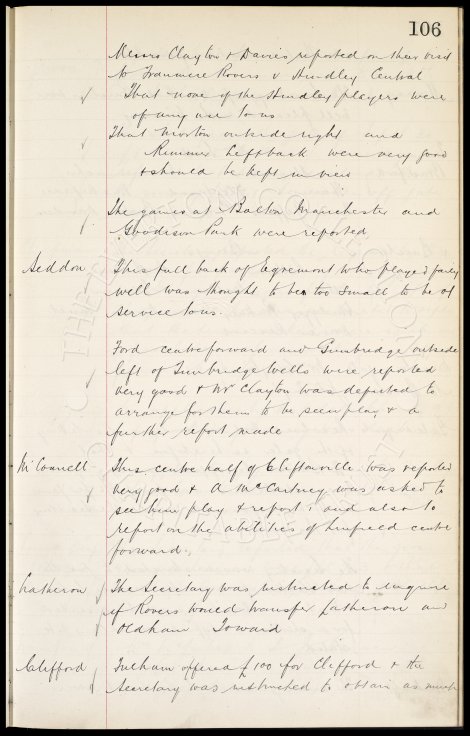 106
Messrs Clayton & Davies reported on their visit
to Tranmere Rovers v Hindley Central
That none of the Hindley players were
of any use to us
That Morton outside right and
Rimmer Left back were very good
& should be kept in view
The games at Bolton Manchester and
Goodison Park were reported
Seddon This full back of Egremont who played fairly
well was thought to be too small to be of
service to us.
Ford centre forward and Gumbridge outside
left of Tunbridge Wells were reported
very good & Mr Clayton was deputed to
arrange for them to be seen play & a
further report made
McConnell This centre half of Cliftonville was reported
very good & A McCartney was asked to
see him play & report; and also to
report on the abilities of Linfield centre
forward.
Latheron The Secretary was instructed to enquire
if Rovers would transfer Latheron and
Oldham Toward
Clifford Fulham offered £100 for Clifford & the
Secretary was instructed to obtain as much